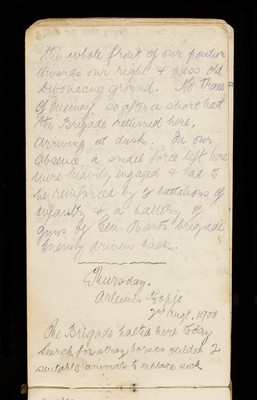 the whole front of our position
towards our right & pass old
bivouacing ground. No traces
of enemy so after a short halt
the Brigade returned here,
arriving at dusk. In our
absence a small force left here
were heavily engaged & had to
be reinforced by 2 battalions of
infantry & a battery of
guns by Gen. Harts brigade
Enemy driven back.
Thursday.
Kopje
2nd Augt. 1900
The Brigade halted here today
Search for stray horses yielded 2
suitable animals to replace sick